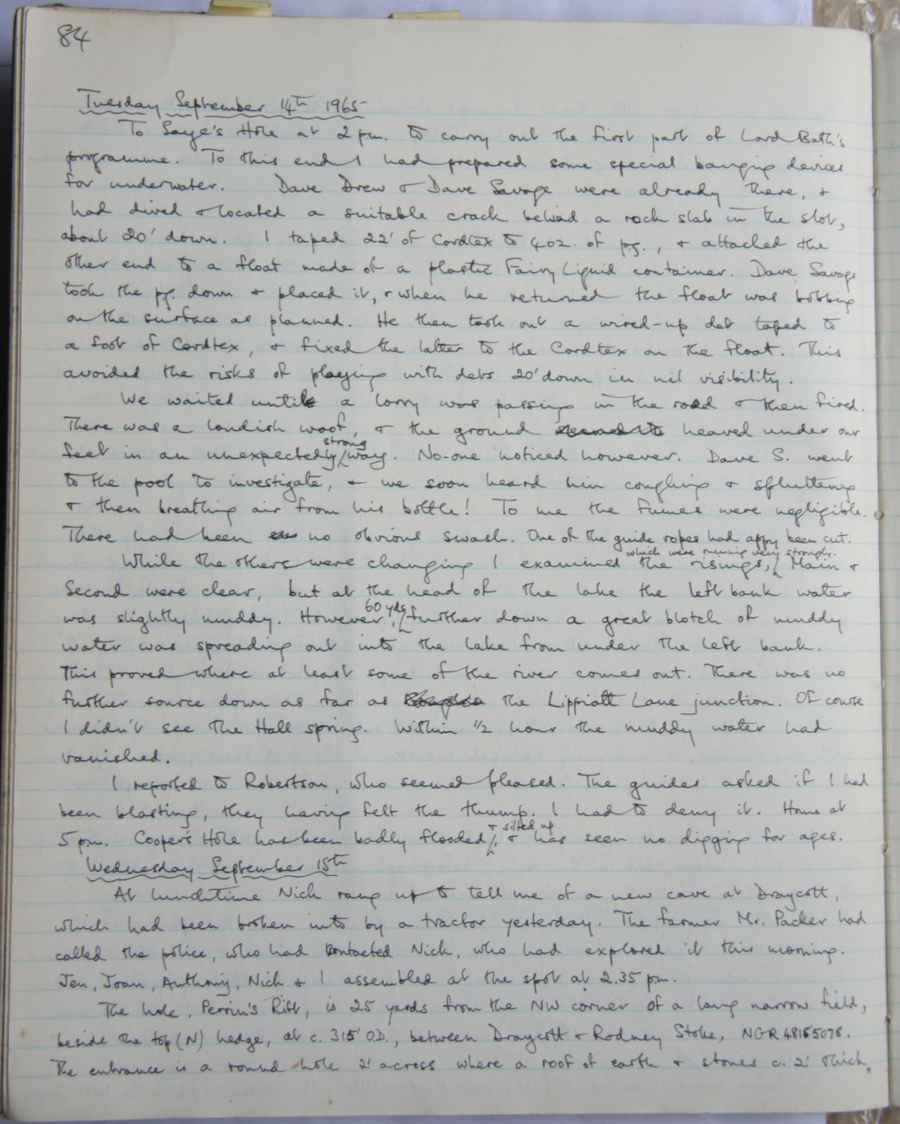 84
Tuesday September 14th 1965
To Saye's Hole at 2 pm. to carry out the first part of Lord Bath's
programme. To this end I had prepared some special banging devices
for underwater. Dave Drew & Dave Savage were already there, &
had dived & located a suitable crack behind a rock slab in the slot,
about 20' down. I taped 22' of Cordtex to 4 oz. of pg., & attached the
other end to a float made of a plastic Fairy Liquid container. Dave Savage
took the pg. down & placed it, & when he returned the float was bobbing
on the surface as planned. He then took out a wired-up det taped to
a foot of Cordtex, & fixed the latter to the Cordtex on the float. This
avoided the risks of playing with dets 20' down in nil visibility.
We waited until a lorry was passing in the road & then fired.
There was a loudish woof, & the ground heaved under our
feet in an unexpectedly strong way. No-one noticed however. Dave S. went
to the pool to investigate, & we soon heard him coughing & spluttering
& then breathing air from his bottle! To me the fumes were negligible.
There had been no obvious swash. One of the guide ropes had appy been cut.
While the others were changing I examined the risings, which were running very strongly. Main &
Second were clear, but at the head of the lake the left bank water
was slightly muddy. However, 60 yds further down a great blotch of muddy
water was spreading out into the lake from under the left bank.
This proved where at least some of the river comes out. There was no
further source down as far as the Lippiatt Lane junction. Of course
I didn't see the Hall spring. Within ½ hour the muddy water had
vanished.
I reported to Robertson, who seemed pleased. The guides asked if I had
been blasting, they having felt the thump. I had to deny it. Home at
5 pm. Cooper's Hole has been badly flooded, & silted up & has seen no digging for ages.
Wednesday September 15th
At lunchtime Nick rang up to tell me of a new cave at Draycott,
which had been broken into by a tractor yesterday. The farmer Mr. Packer had
called the police, who had contacted Nick, who had explored it this morning.
Jen, Joan, Anthony, Nick & I assembled at the spot at 2.35 pm.
The hole, Perrin's Rift, is 25 yards from the NW corner of a long narrow field,
beside the top (N) hedge, at c. 315' OD., between Draycott & Rodney Stoke, NGR 48165078.
The entrance is a round hole 2' across where a roof of earth & stones c. 2' thick,